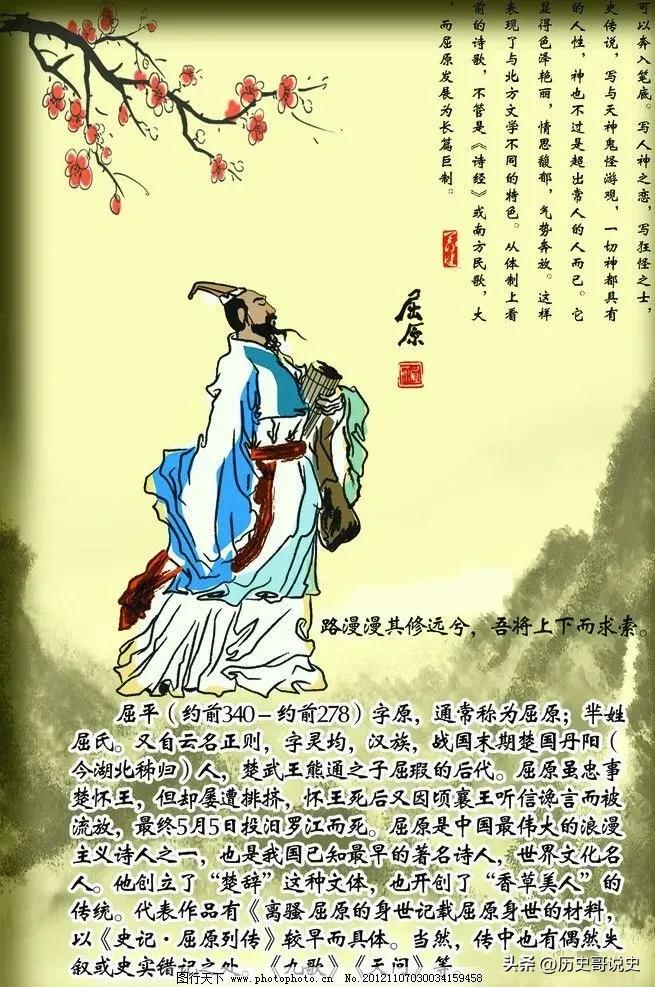 可以奔入笔底。写人神之恋，写狂怪之士，
史传说，写与天神鬼怪游观，一切神都具有
的人性，神也不过是超出常人的人而已。它
显得色泽艳丽，情思馥郁，气势奔放。这样
表现了与北方文学不同的特色。从体制上看
前的诗歌，不管是《诗经》或南方民歌，大
，而屈原发展为长篇巨制。
屈原
路漫漫其修远兮，吾将上下而求索。
屈平（约前340－约前278）字原，通常称为屈原；芈姓
屈氏。又自云名正则，字灵均，汉族，战国末期楚国丹阳（
今湖北秭归）人，楚武王熊通之子屈瑕的后代。屈原虽忠事
楚怀王，但却屡遭排挤，怀王死后又因顷襄王听信谗言而被
流放，最终5月5日投汨罗江而死。屈原是中国最伟大的浪漫
主义诗人之一，也是我国已知最早的著名诗人，世界文化名
人。他创立了“楚辞”这种文体，也开创了“香草美人”的
传统。代表作品有《离骚屈原的身世记载屈原身世的材料，
以《史记·屈原列传》较早而具体。当然，传中也有偶然失
叙或史实错记之处。《九歌》《天问》等
头条 @历史哥说史
图片大图网 www.photophoto.cn No.20121107030034159458